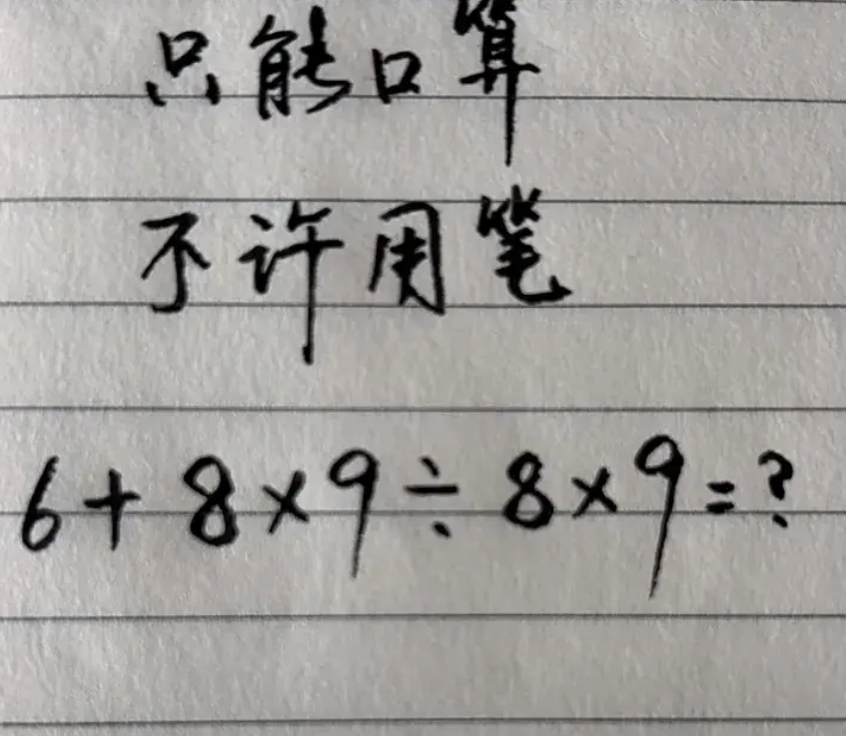 只能口算
不许用笔
6+8×9÷8×9=?